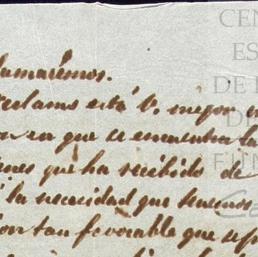 lamarémos.
reclamo está V. mejor
que se encuentra la
nes que ha recibido de
la necesidad que tenemos
tan favorable que se p
CEN
ES
DE
D
FUN
Ca